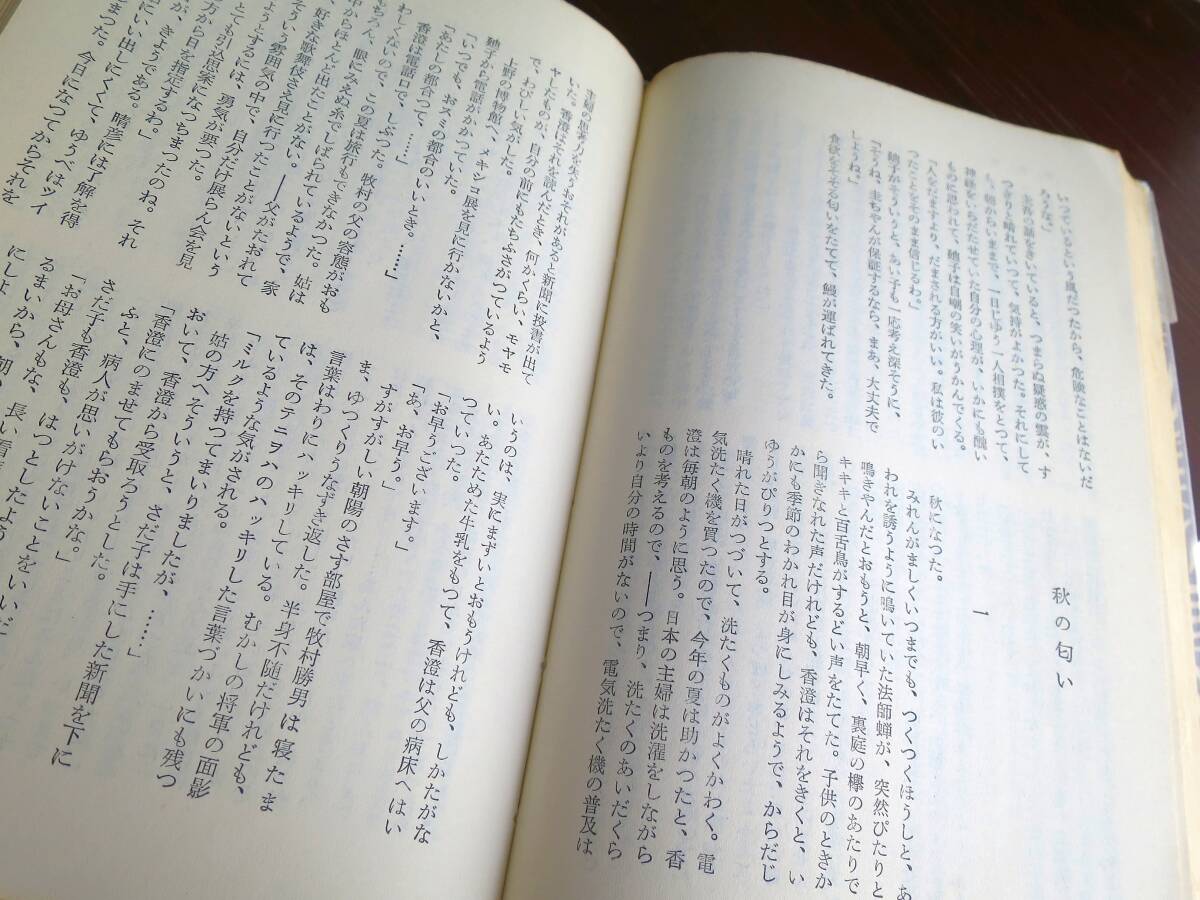 いつているという風だつたから、危険なことはないだ
ろうな。」
圭吾の話をきいていると、つまらぬ疑惑の雲が、す
つかりと晴れていつて、気持がよかつた。それにして
も、朝からいままで、一日じゆう一人相撲をとつて、
神経をいらだたせていた自分の心理が、いかにも醜い
ものに思われて、 子は自嘲の笑いがうかんでくる。
「人をだますより、だまされる方がいい。私は彼のい
つたことをそのまま信じるわ。」
 子がそういうと、あい子も一応考え深そうに、
「そうね、圭ちやんが保証するなら、まあ、大丈夫で
しようね。」
食欲をそそる匂いをたてて、鰻が運ばれてきた。
秋の匂い
一
秋になつた。
みれんがましくいつまでも、つくつくほうしと、あ
われを誘うように鳴いていた法師蝉が、突然ぴたりと
鳴きやんだとおもうと、朝早く、裏庭の欅のあたりで
キキキと百舌鳥がするどい声をたてた。子供のときか
ら聞きなれた声だけれども、香澄はそれをきくと、い
かにも季節のわかれ目が身にしみるようで、からだじ
ゆうがぴりつとする。
晴れた日がつづいて、洗たくものがよくかわく。電
気洗たく機を買つたので、今年の夏は助かつたと、香
澄は毎朝のように思う。日本の主婦は洗濯をしながら
ものを考えるので、――つまり、洗たくのあいだくら
いより自分の時間がないので、電気洗たく機の普及は
主婦の思考力を失うおそれがあると新聞に投書が出て
いた。香澄はそれを読んだとき、何かくらい、モヤモ
ヤしたものが、自分の前にもたちふさがつているよう
で、わびしい気がした。
上野の博物館へ、メキシコ展を見に行かないかと、
 子から電話がかかつていた。
「あたしの都合つて、……」
「いつでも、おスミの都合のいいとき。……」
香澄は電話口で、しぶつた。牧村の父の容態がおも
わしくないので、この夏は旅行もできなかつた。姑は
もちろん、眼にみえぬ糸でしばられているようで、家
中からほとんど出たことがない。――父がたおれて
、好きな歌舞伎さえ見に行つたことがないという
そういう雰囲気の中で、自分だけ展らん会を見
ようとするには、勇気が要つた。
とても引込思案になつちまつたのね。それ
方から日を指定するわ。」
が、きようである。晴彦には了解を得
にいい出しにくくて、ゆうべはツイ
まつた。今日になつてからそれを
いうのは、実にまずいとおもうけれども、しかたがな
い。あたためた牛乳をもつて、香澄は父の病床へはい
つていつた。
「お早うございます。」
「あ、お早う。」
すがすがしい朝陽のさす部屋で牧村勝男は寝たま
ま、ゆつくりうなずき返した。半身不随だけれども、
言葉はわりにハッキリしている。むかしの将軍の面影
は、そのテニヲハのハッキリした言葉づかいにも残つ
ているような気がされる。
「ミルクを持つてまいりましたが、……」
姑の方へそういうと、さだ子は手にした新聞を下に
おいて、香澄から受取ろうとした。
「香澄にのませてもらおうかな。」
ふと、病人が思いがけないことをいいだ
さだ子も香澄も、はつとしたよう
「お母さんもな、長い看
るまいから、朝
にしよ